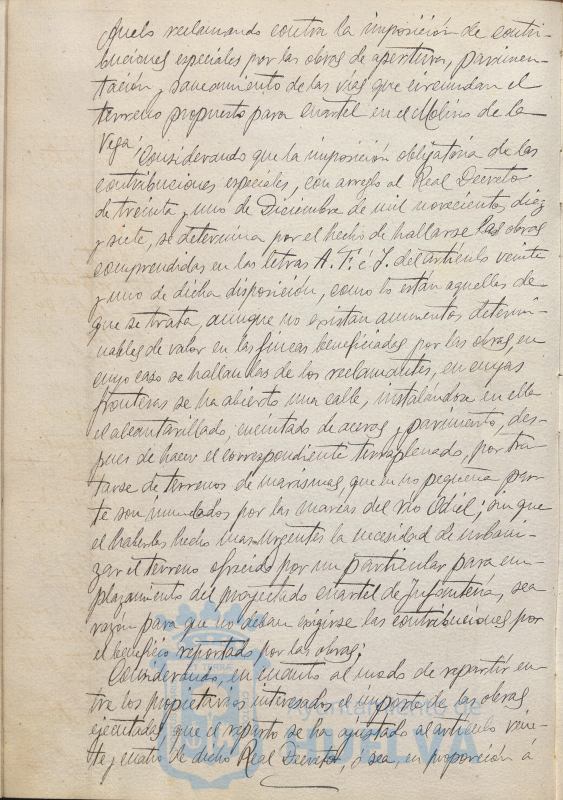 Anelo reclamando contra la imposición de contri-
buciones especiales por las obras de apertura, pavimen-
tación y saneamiento de las vías que circundan el
terreno propuesto para cuartel en el Molino de la
Vega;
Considerando que la imposición obligatoria de las
contribuciones especiales, con arreglo al Real Decreto
de treinta y uno de Diciembre de mil novecientos diez
y siete, se determina por el hecho de hallarse las obras
comprendidas en las letras A. F. é J. del artículo veinte
y uno de dicha disposición, como lo están aquellas de
que se trata, aunque no existan aumentos determi-
nables de valor en las fincas beneficiadas por las obras, en
cuyo caso se hallan las de los reclamantes, en cuyas
fronteras se ha abierto una calle, instalándose en ella
el alcantarillado, encintado de aceras y pavimento, des-
pues de hacer el correspondiente terraplenado, por tra-
tarse de terrenos de marismas, que en no pequeña par-
te son inundados por las mareas del río Odiel; sin que
el haberlos hecho mas urgentes la necesidad de urbani-
zar el terreno ofrecido por un particular para em-
plazamiento del proyectado cuartel de Infantería, sea
razón para que no deban exigirse las contribuciones por
el beneficio reportado por las obras;
Considerando, en cuanto al modo de repartir en-
tre los propietarios interesados el importe de las obras
ejecutadas, que el reparto se ha ajustado al artículo vein-
te y cuatro de dicho Real Decreto, ó sea, en proporción á
HUELVA